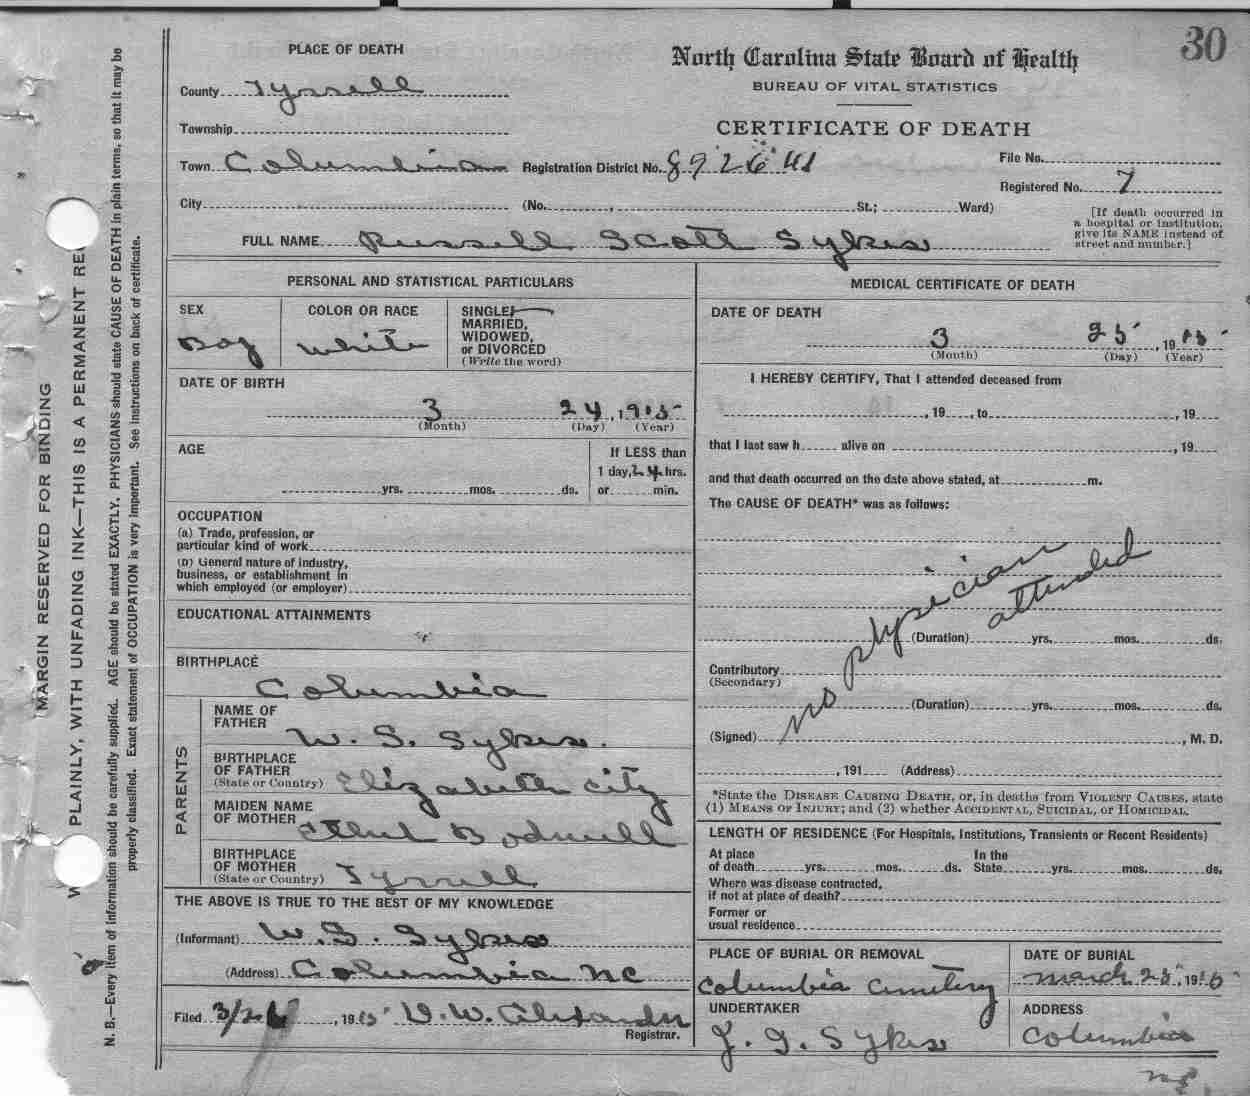 30
PLACE OF DEATH
North Carolina State Board of Health
BUREAU OF VITAL STATISTICS
CERTIFICATE OF DEATH
County Tyrrell
Township
Town Columbia Registration District No. 89 2641 File No.
Registered No. 7
City (No. , St.; Ward)
[If death occurred in
a hospital or institution,
give its NAME instead of
street and number.]
FULL NAME Russell Scott Sykes
PERSONAL AND STATISTICAL PARTICULARS
SEX
Boy
COLOR OR RACE
white
SINGLE,
MARRIED,
WIDOWED,
or DIVORCED
(Write the word)
DATE OF BIRTH
3 24, 1915
(Month) (Day) (Year)
AGE
yrs. mos. ds.
If LESS than
1 day, 24 hrs.
or min.
OCCUPATION
(a) Trade, profession, or
particular kind of work
(b) General nature of industry,
business, or establishment in
which employed (or employer)
EDUCATIONAL ATTAINMENTS
BIRTHPLACE
Columbia
PARENTS
NAME OF
FATHER
W. S. Sykes.
BIRTHPLACE
OF FATHER
(State or Country) Elizabeth City
MAIDEN NAME
OF MOTHER
Ethel
BIRTHPLACE
OF MOTHER
(State or Country) Tyrrell
THE ABOVE IS TRUE TO THE BEST OF MY KNOWLEDGE
(Informant) W. S. Sykes
(Address) Columbia NC
Filed 3/26, 1915 V. W. Alexander
Registrar.
MEDICAL CERTIFICATE OF DEATH
DATE OF DEATH
3 25, 1915
(Month) (Day) (Year)
I HEREBY CERTIFY, That I attended deceased from
, 19 , to , 19
that I last saw h alive on , 19
and that death occurred on the date above stated, at m.
The CAUSE OF DEATH* was as follows:
no physician
attended
(Duration) yrs. mos. ds.
Contributory
(Secondary)
(Duration) yrs. mos. ds.
(Signed) , M. D.
, 191 (Address)
*State the DISEASE CAUSING DEATH, or, in deaths from VIOLENT CAUSES, state
(1) MEANS OF INJURY; and (2) whether ACCIDENTAL, SUICIDAL, or HOMICIDAL.
LENGTH OF RESIDENCE (For Hospitals, Institutions, Transients or Recent Residents)
At place
of death yrs. mos. ds.
In the
State yrs. mos. ds.
Where was disease contracted,
if not at place of death?
Former or
usual residence
PLACE OF BURIAL OR REMOVAL
Columbia Cemetery
DATE OF BURIAL
March 25, 1915
UNDERTAKER
J. G. Sykes
ADDRESS
Columbia
NC
MARGIN RESERVED FOR BINDING
PLAINLY, WITH UNFADING INK—THIS IS A PERMANENT RE
N. B.—Every item of information should be carefully supplied. AGE should be stated EXACTLY. PHYSICIANS should state CAUSE OF DEATH in plain terms, so that it may be
properly classified. Exact statement of OCCUPATION is very important. See instructions on back of certificate.